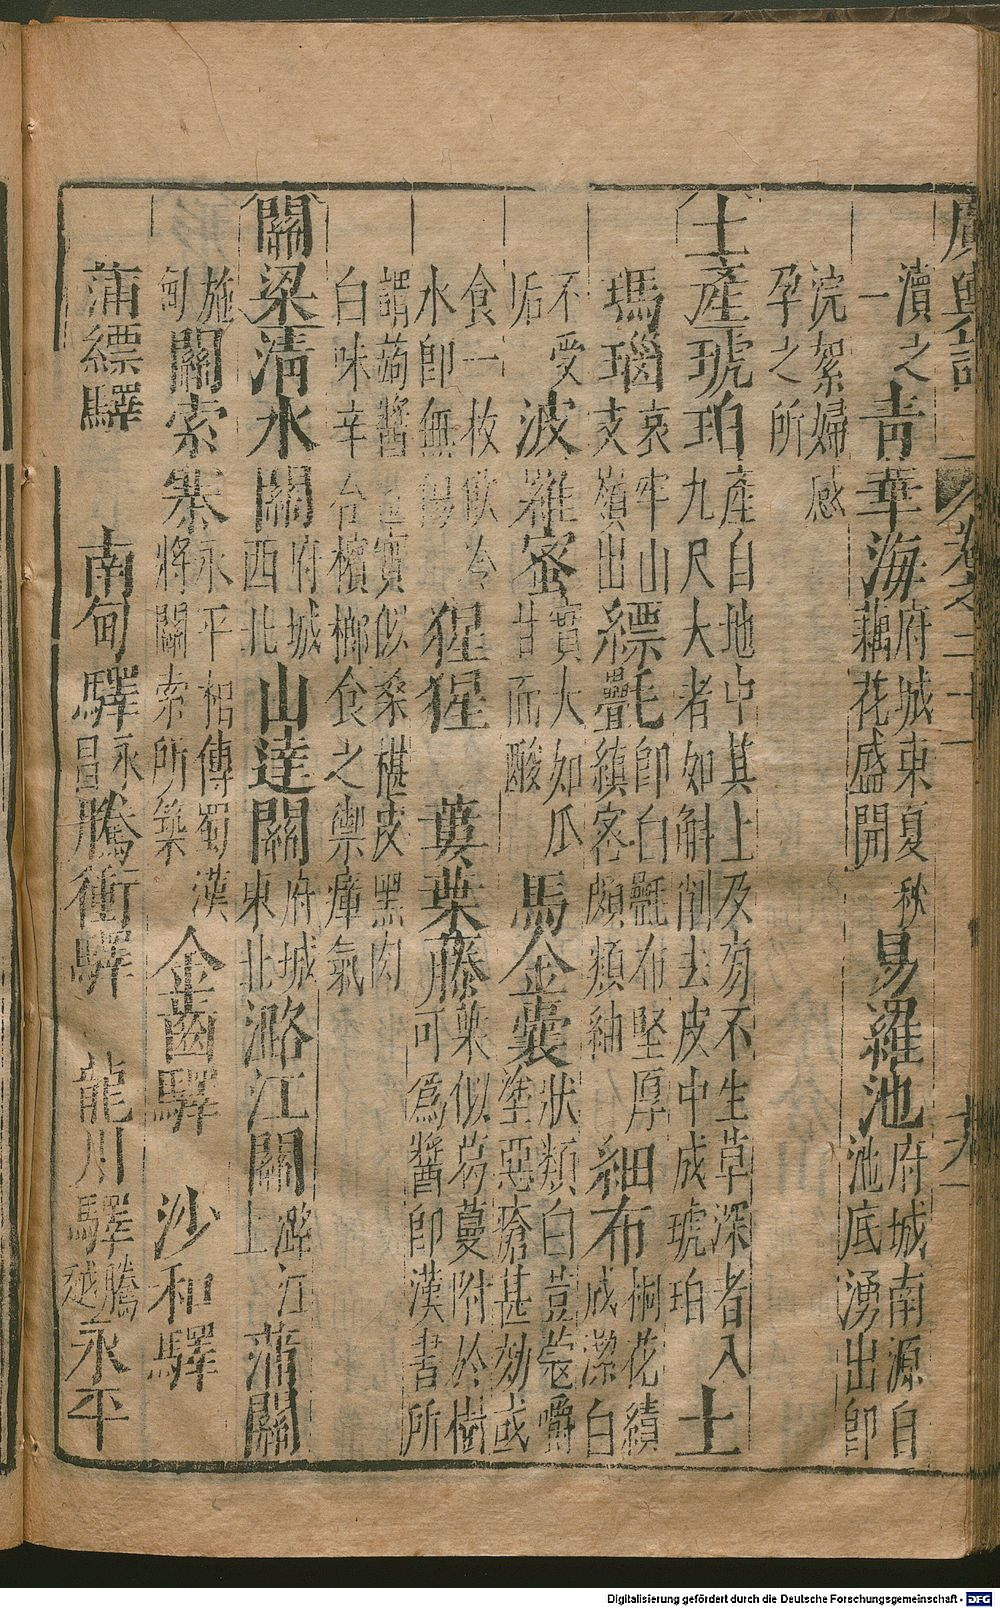 廣輿記 卷之二十一
瀆之一 青華海 府城東夏秋藕花盛開 易羅池 府城南源自池底湧出即
浣絮婦感孕之所
土產 琥珀 產自地中其上及旁不生草深者入九尺大者如斛削去皮中成琥珀 土
瑪瑙 哀牢山支嶺出 縹氎 即白氎布堅厚縝密頗類紬 細布 桐花績成潔白
不受垢 波羅蜜 實大如瓜甘而酸 馬金囊 狀類白荳蔻嚼塗惡瘡甚効或
食一枚飲冷水即無傷 猩猩 蔞葉藤 葉似葛蔓附於樹可爲醬即漢書所
謂蒟醬也實似桑椹皮黑肉白味辛合檳榔食之禦瘴氣
關梁 清水關 府城西北 山達關 府城東北 潞江關 潞江上 蒲關
施甸 關索寨 永平相傳蜀漢將關索所築 金齒驛 沙和驛
蒲縹驛 南甸驛 永昌 騰衝驛 龍川驛 騰越 永平
Digitalisierung gefördert durch die Deutsche Forschungsgemeinschaft - DFG